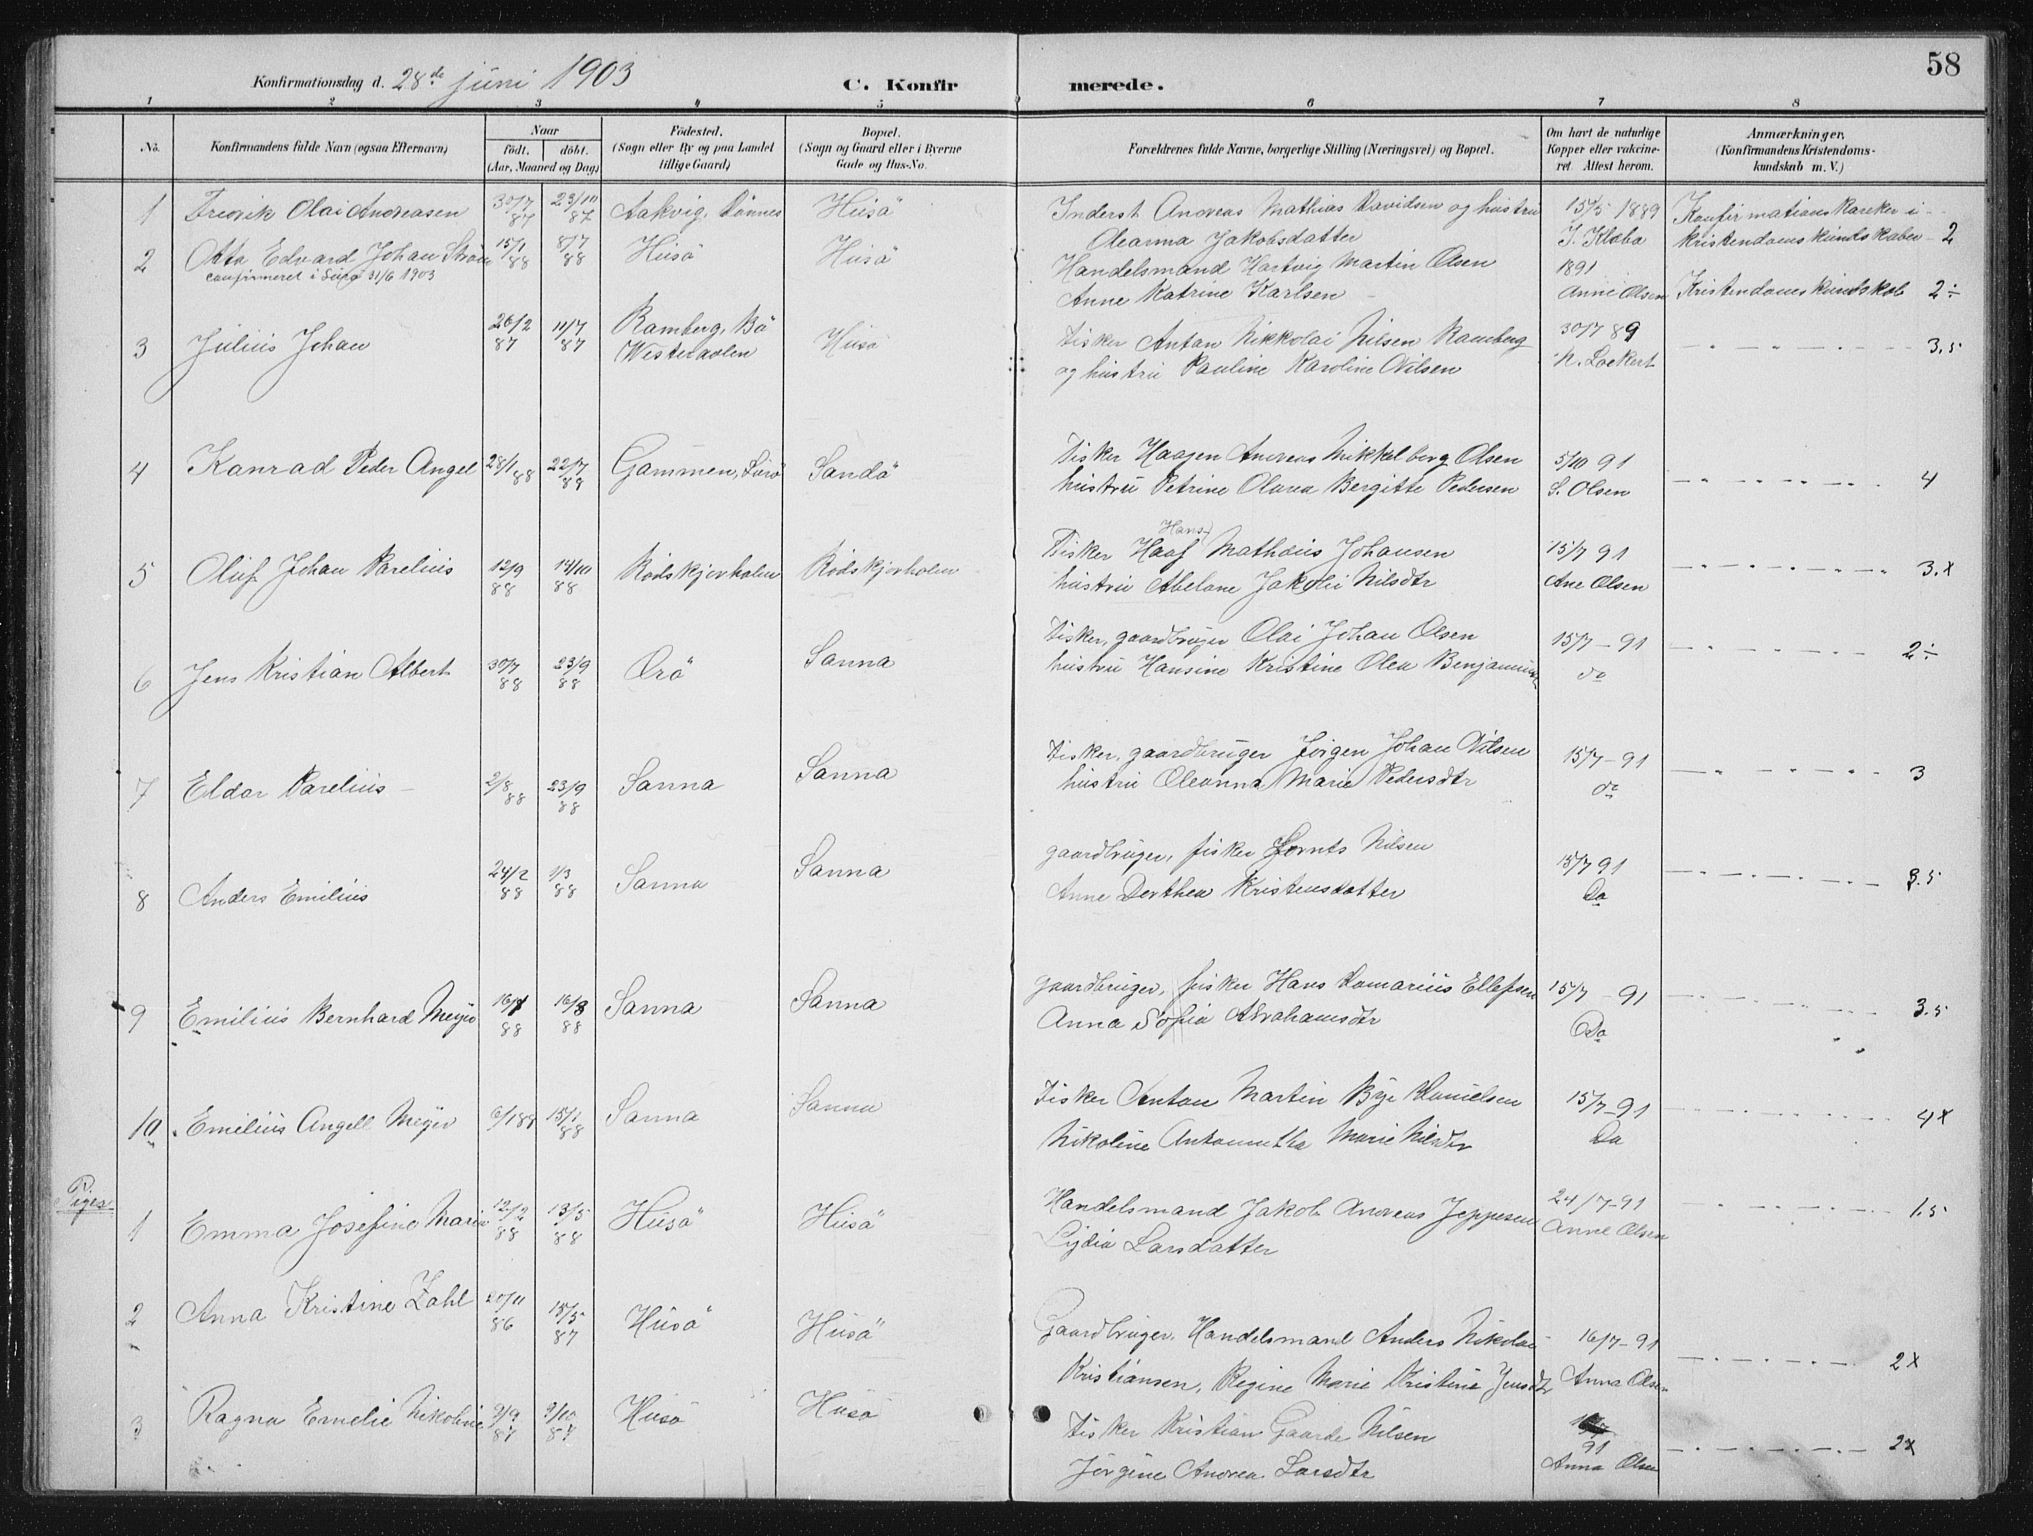 58
Konfirmationsdag d. 28de juni 1903 C. Konfir merede.
1 2 3 4 5 6 7 8
No. Konfirmandens fulde Navn (ogsaa Efternavn) Naar født. døbt. (Aar, Maaned og Dag) Fødested. (Sogn eller By og paa Landet tillige Gaard) Bopæl. (Sogn og Gaard eller i Byerne Gade og Hus-No. Forældrenes fulde Navne, borgerlige Stilling (Næringsvei) og Bopæl. Om havt de naturlige Kopper eller vakcineret Attest herom. Anmærkninger. (Konfirmandens Kristendomskundskab m. V.)
1 Fredrik Olai Andreasen 30/7 87 23/10 87 Aakvig, Dønnes Husö Inderst Andreas Mathias Davidsen og hustru 15/5 1889
Oleanna Jakobsdatter J. Klæbo kristendomskundskaber 2
2 Otto Edvard Johan Strøm 15/1 88 8/7 88 Husö Husö Handelsmand Hartvig Martin Olsen 1891
confirmeret i 31/6 1903 Anne Katrine Karlsen Anne Olsen Kristendomskundskab 2÷
3 Julius Johan 26/2 87 11/7 87 Ramberg, Bö Westeraalen Husö Fisker Antan Nikkolai Nilsen Ramberg 30/7 89 3.5
og hustru Pauline Karoline Nilsen N. Lockert
4 Kanrad Peder Angel 28/1 88 22/7 88 Gammen, Sandö Fisker Haagen Andreas Mikkelberg Olsen 5/10 91 4
hustru Petrine Olava Bergitte Pedersen S. Olsen
Hans
5 Oluf Johan Parelius 12/9 88 14/10 88 Rödskjærholen Rödskjærholen Fisker Haaf Mathæus Johansen 15/7 91 3.x
hustru Abelone Jakobi Nilsdtr Ane Olsen
6 Jens Kristian Albert 30/7 88 23/9 88 Ørö Sanna Fisker, gaardbruger Olai Johan Olsen 15/7 - 91 2÷
hustru Hansine Kristine Olea do
7 Eldor Parelius 2/8 88 23/9 88 Sanna Sanna Fisker, gaardbruger Jørgen Johan Nilsen 15/7 - 91 3
hustru Oleanna Marie Pedersdtr do
8 Anders Emilius 24/2 88 1/3 88 Sanna Sanna gaardbruger, fisker Nilsen 15/7 91 3.5
Anne Dorthea Kristensdatter Do
9 Emilius Bernhard Meyer 88 16/8 88 Sanna Sanna gaardbruger, fisker Hans Damarius Ellefsen 15/7 - 91 3.5
Anna Sofia Abrahamsdtr Do
10 Emilius Angell Meyer 6/1 88 15/1 88 Sanna Sanna Fisker Anton Martin Bye Danielsen 15/7 - 91 4x
Nikoline Marie Nilsdtr Do
Piger
1 Emma Josefine Marie 12/2 88 13/5 88 Husö Husö Handelsmand Jakob Andreas Jeppesen 24/7 - 91 1.5
Lydia Larsdatter Anne Olsen
2 Anna Kristine Zahl 20/11 86 15/5 87 Husö Husö Gaardbruger, Handelsmand Anders Nikolai 16/7 - 91 2x
Kristiansen, Regine Marie Kristine Jensdtr Anna Olsen
3 Ragna Emelie Nikoline 9/9 87 9/10 87 Husö Husö Fisker Kristian Gaarde Nilsen 91 2x
Jørgine Andrea Larsdtr Anna Olsen